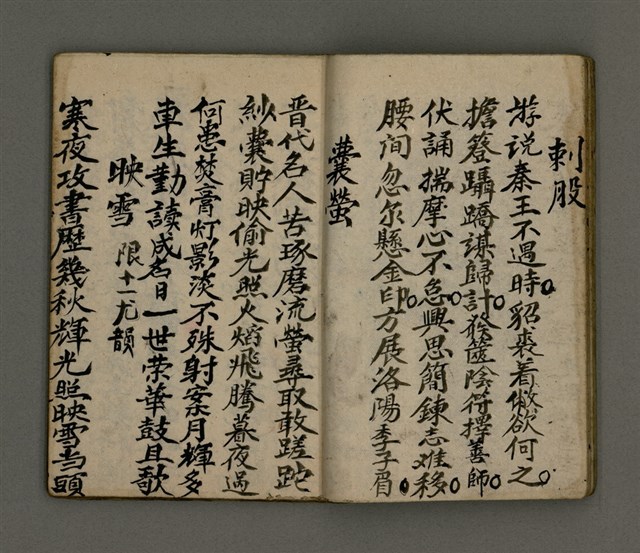 刺股
游说秦王不遇時貂裘着敝欲何之
擔簦躡蹻謀歸計發篋陰符擇善師
伏誦揣摩心不怠興思簡鍊志难移
腰间忽尔懸金印方展洛陽季子眉
囊螢
晋代名人苦琢磨流螢尋取敢蹉跎
紗囊貯映偷光照火焰飛騰暮夜過
何患焚膏灯影淡不殊射案月輝多
車生勤讀成名日一世荣華鼓且歌
映雪 限十一尤韻
寒夜攻書歷幾秋輝光照映雪当頭